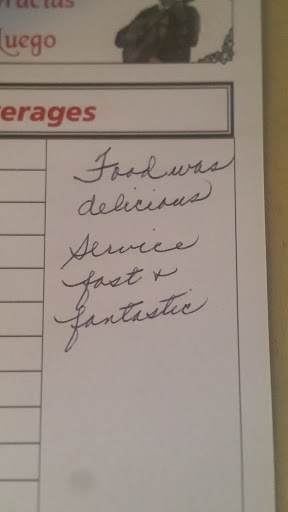 Gracias
Luego
erages
Food was
delicious
Service
fast &
fantastic